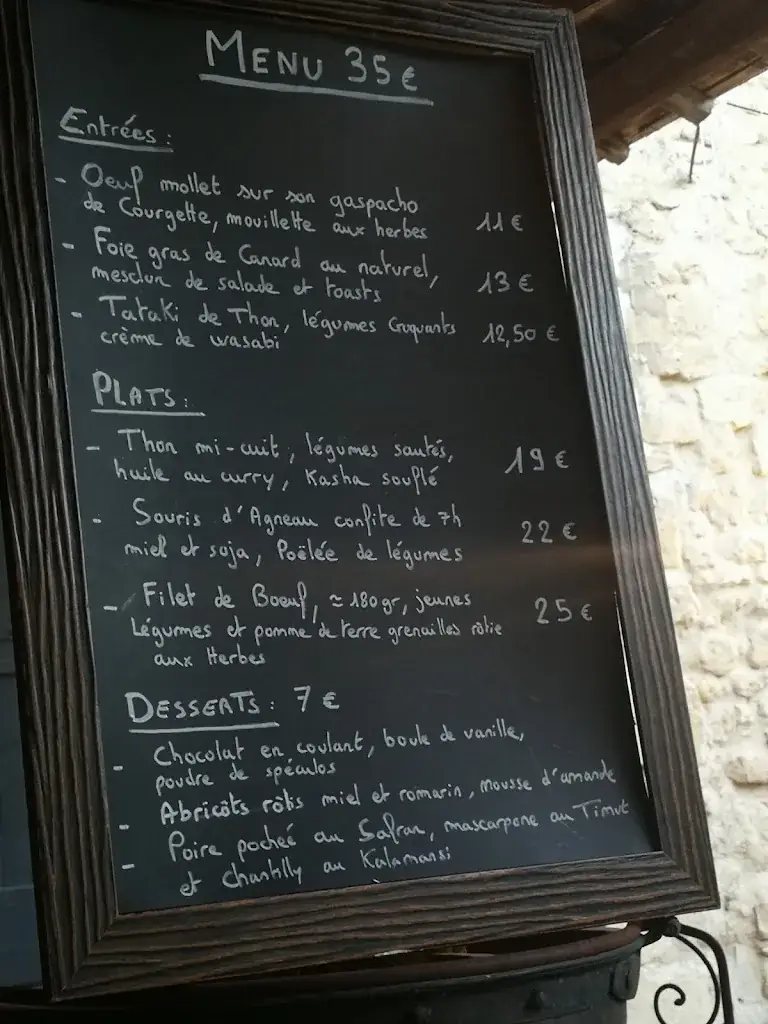 MENU 35€
Entrées :
- Oeuf mollet sur son gaspacho
de Courgette, mouillette aux herbes 11 €
- Foie gras de Canard au naturel,
mesclun de salade et toasts 13 €
- Tataki de Thon, légumes Croquants
crème de wasabi 12,50 €
PLATS :
- Thon mi-cuit, légumes sautés,
huile au curry, Kasha souflé 19 €
- Souris d'Agneau confite de 7h
miel et soja, Poêlée de légumes 22 €
- Filet de Boeuf, ≈ 180gr, jeunes
Légumes et pomme de terre grenailles rôtie
aux Herbes 25 €
DESSERTS : 7 €
- Chocolat en coulant, boule de vanille,
poudre de spéculos
- Abricots rôtis miel et romarin, mousse d'amande
- Poire pocheé au Safran, mascarpone au Timut
et chantilly au Kalamansi